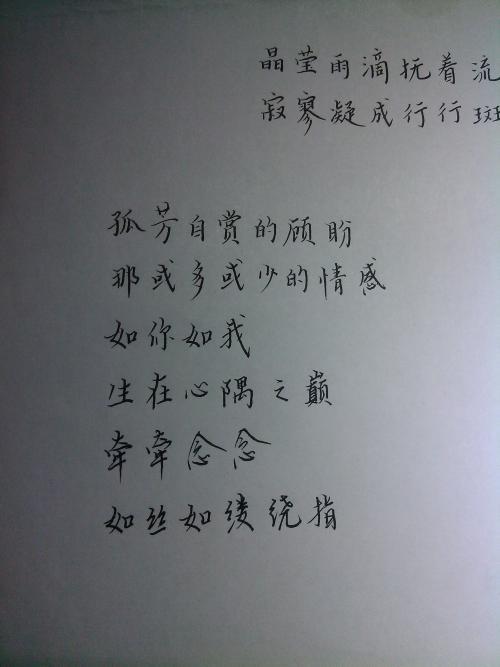 晶莹雨滴抚着流
寂寥凝成行行斑
孤芳自赏的顾盼
那或多或少的情感
如你如我
生在心隅之巅
牵牵念念
如丝如缕绕指